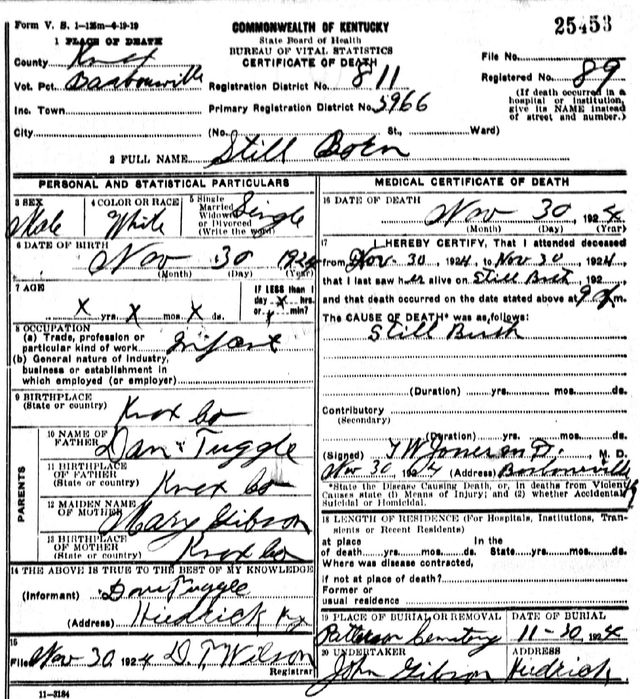 Form V. S. 1—125m—4-19-19
COMMONWEALTH OF KENTUCKY
25453
1 PLACE OF DEATH
State Board of Health
BUREAU OF VITAL STATISTICS
CERTIFICATE OF DEATH
County Knox
File No.
Vot. Pct. Barbourville
Registration District No. 811
Registered No. 89
(If death occurred in a hospital or institution, give its NAME instead of street and number.)
Inc. Town
Primary Registration District No. 5966
City
(No. St., Ward)
2 FULL NAME Still Born
PERSONAL AND STATISTICAL PARTICULARS
3 SEX Male
4 COLOR OR RACE White
5 Single Married Widowed or Divorced (Write the word) Single
6 DATE OF BIRTH Nov 30 1924
(Month) (Day) (Year)
7 AGE
x yrs. x mos. x ds.
If LESS than 1 day x hrs. or x min?
8 OCCUPATION
(a) Trade, profession or particular kind of work Infant
(b) General nature of Industry, business or establishment in which employed (or employer)
9 BIRTHPLACE
(State or country) Knox Co
PARENTS
10 NAME OF FATHER Dan Tuggle
11 BIRTHPLACE OF FATHER
(State or country) Knox Co
12 MAIDEN NAME OF MOTHER Mary Gibson
13 BIRTHPLACE OF MOTHER
(State or country) Knox Co
14 THE ABOVE IS TRUE TO THE BEST OF MY KNOWLEDGE
(Informant) Dan Tuggle
(Address) Hiedrick Ky
15
Filed Nov 30 1924 D. T. Wilson
Registrar
11—3184
MEDICAL CERTIFICATE OF DEATH
16 DATE OF DEATH
Nov 30, 1924
(Month) (Day) (Year)
17 I HEREBY CERTIFY, That I attended deceased
from Nov. 30, 1924, to Nov 30, 1924
that I last saw h alive on Still Birth, 192
and that death occurred on the date stated above at 9 m.
The CAUSE OF DEATH* was as follows:
Still Birth
(Duration) yrs. mos. ds.
Contributory
(Secondary)
(Duration) yrs. mos. ds.
(Signed) T W Jones M.D., M. D.
Nov 30 1924 (Address) Barbourville
*State the Disease Causing Death, or, in deaths from Violent
Causes state (1) Means of Injury; and (2) whether Accidental,
Suicidal or Homicidal.
18 LENGTH OF RESIDENCE (For Hospitals, Institutions, Transients or Recent Residents)
at place of death yrs. mos. ds. In the State yrs. mos. ds.
Where was disease contracted,
if not at place of death?
Former or
usual residence
19 PLACE OF BURIAL OR REMOVAL Patterson Cemetery
DATE OF BURIAL 11-30, 1924
20 UNDERTAKER John Gibson
ADDRESS Hiedrick